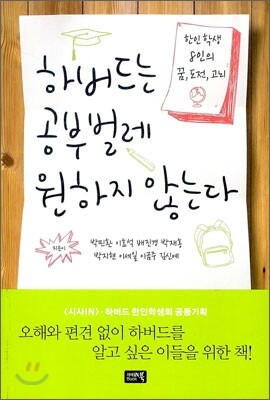 한인 학생
8인의
꿈, 도전, 고뇌
하버드는
공부벌레
원하지 않는다
지은이
박민환 이효석 배진경 박재홍
박지현 이세일 이곰우 김신애
<시사IN> · 하버드 한인학생회 공동기획
오해와 편견 없이 하버드를
알고 싶은 이들을 위한 책!
시사IN북
Book